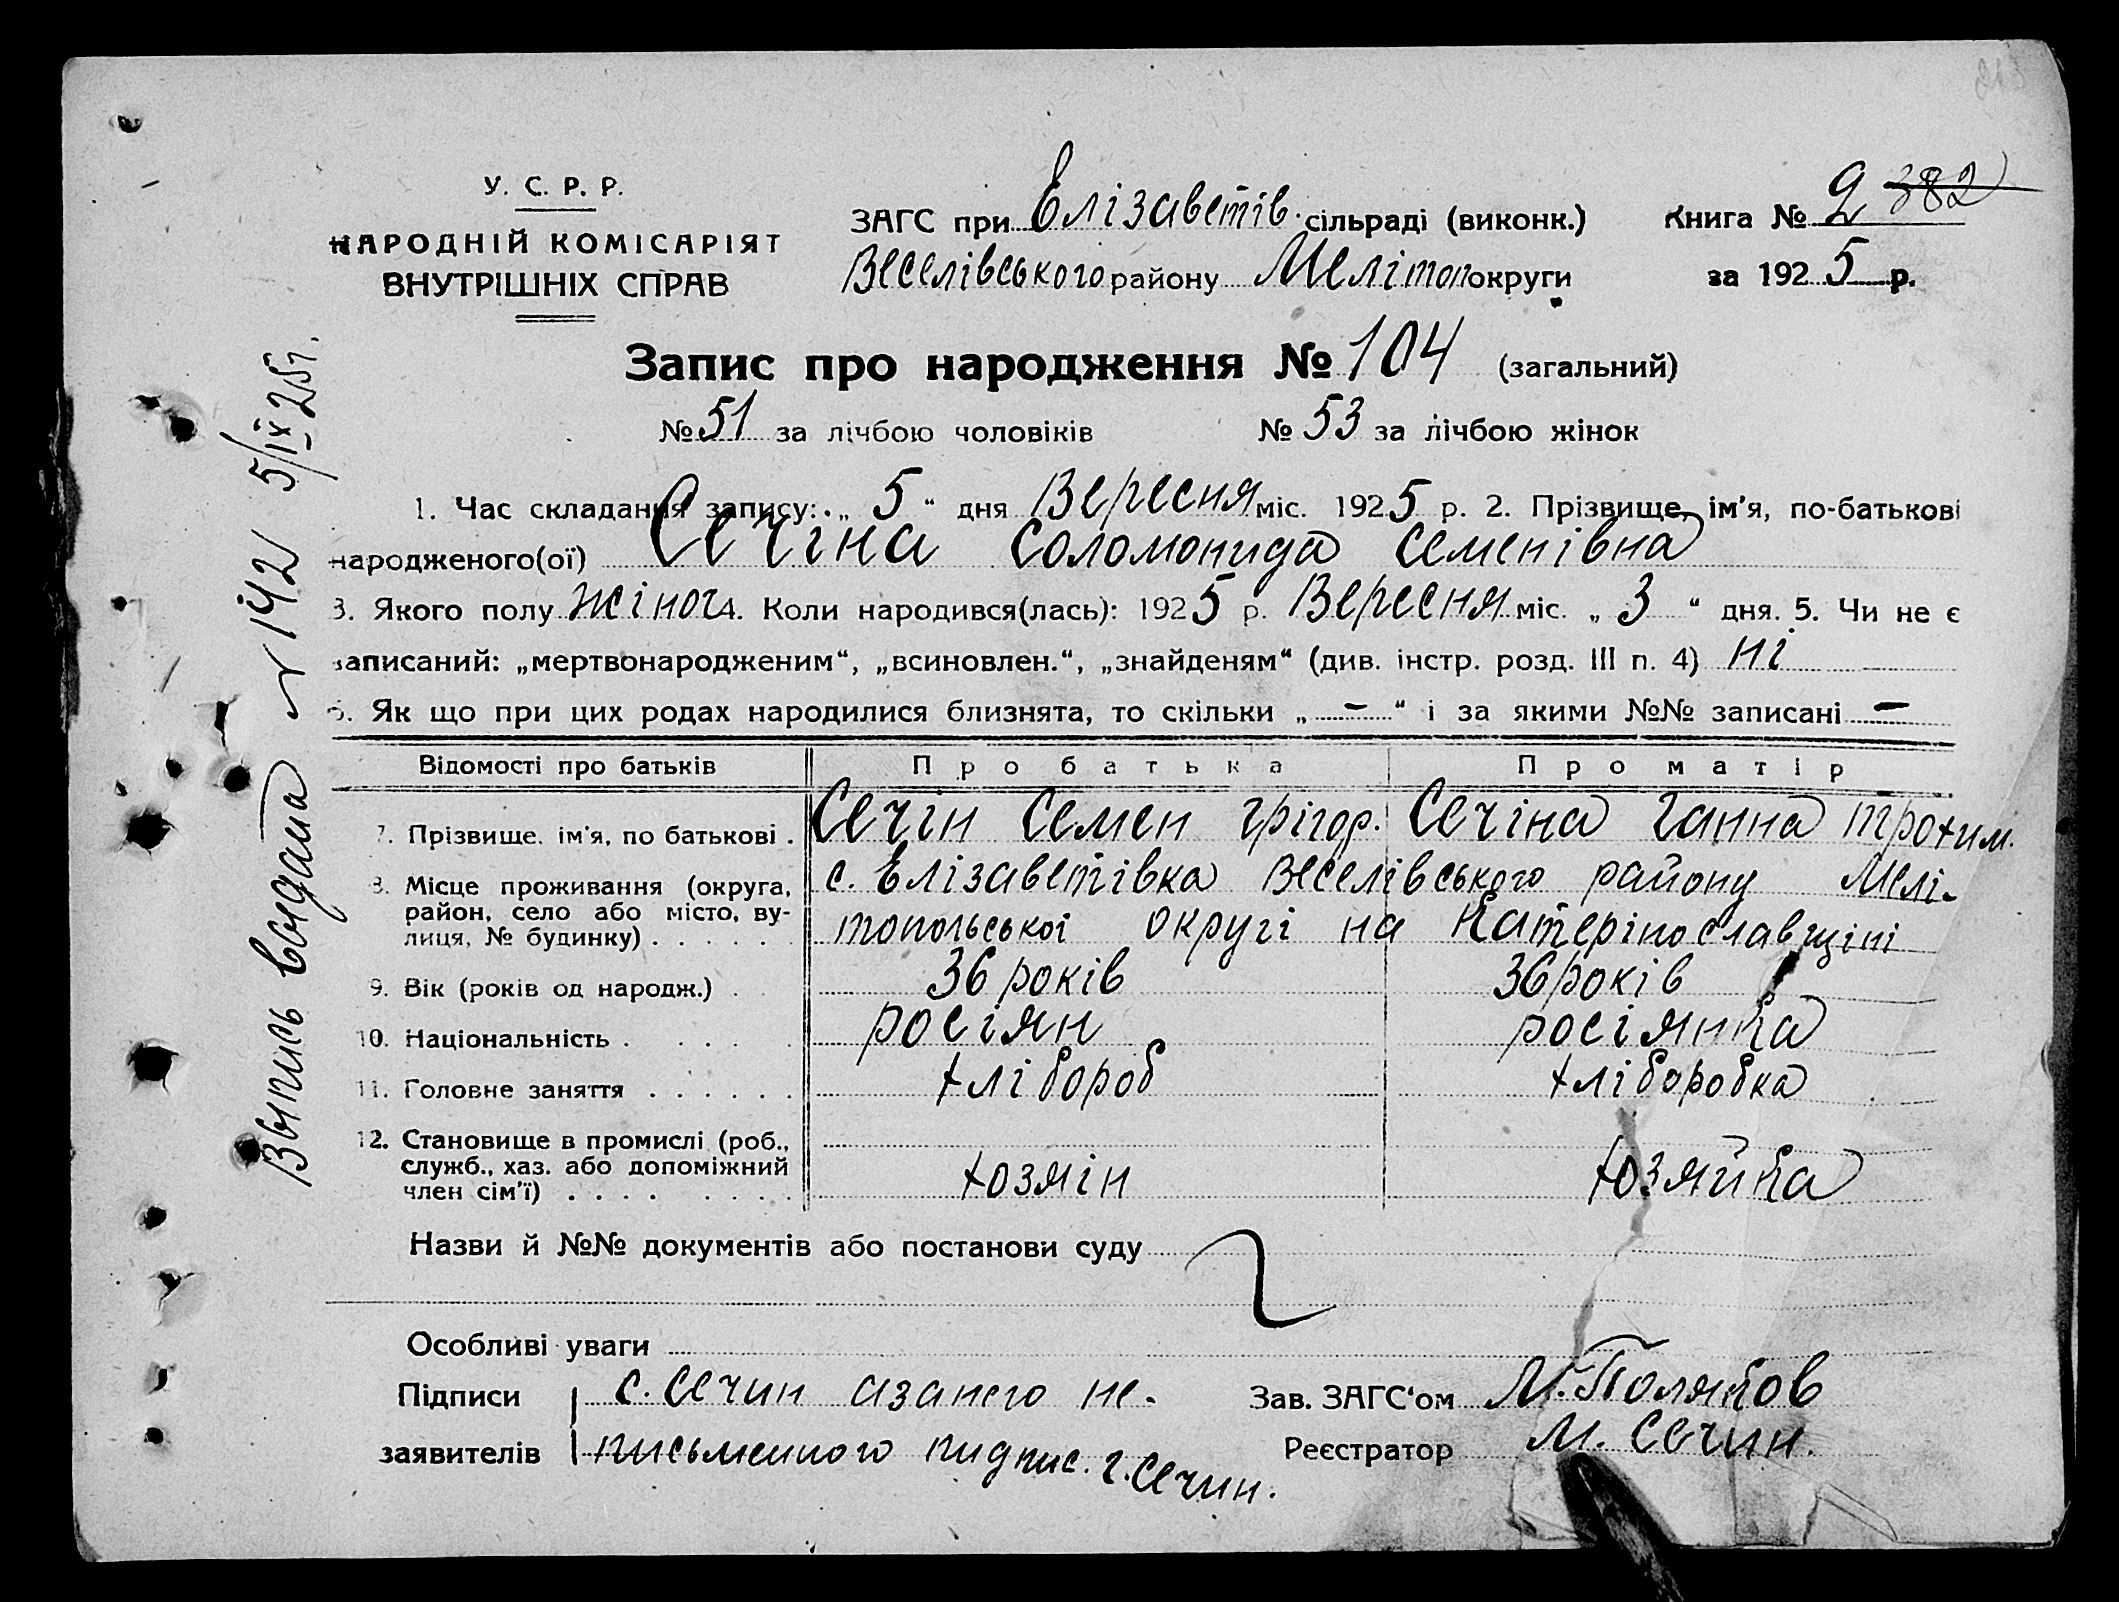 У. С. Р. Р.
НАРОДНІЙ КОМІСАРІЯТ
ВНУТРІШНІХ СПРАВ
ЗАГС при Елізаветів. сільраді (виконк.)
Веселівського району Мелітоп округи
Книга № 2 382
за 1925 р.
Запис про народження № 104 (загальний)
№ 51 за лічбою чоловіків № 53 за лічбою жінок
1. Час складання запису: „ 5 “ дня Вересня міс. 1925 р. 2. Прізвище, ім'я, по-батькові
народженого(ої) Сечіна Соломонида Семенівна
3. Якого полу жіноч 4. Коли народився(лась): 1925 р. Вересня міс. „ 3 “ дня. 5. Чи не є
записаний: „мертвонародженим“, „всиновлен.“, „знайденям“ (див. інстр. розд. III п. 4) ні
6. Як що при цих родах народилися близнята, то скільки „ - “ і за якими №№ записані -
Відомості про батьків Про батька Про матір
7. Прізвище, ім'я, по батькові . Сечін Семен Грігор. Сечіна Ганна Трохим.
8. Місце проживання (округа, с. Елізаветівка Веселівського району Мелі-
район, село або місто, ву-
лиця, № будинку) . . . . . топольської округі на Катерінославщіні
9. Вік (років од народж.) . 36 років 36 років
10. Національність . . . . росіян росіянка
11. Головне заняття . . . . . . хлібороб хліборобка
12. Становище в промислі (роб.,
служб., хаз. або допоміжний
член сім'ї) . . . . . . . . хозяін хозяйка
Назви й №№ документів або постанови суду
Особливі уваги
Підписи С. Сечин азанего не-
заявителів письменного пидпис. Г. Сечин.
Зав. ЗАГС'ом М. Поляков
Реєстратор М. Сечин.
Выпись выдана № 142 5/IX 25 г.